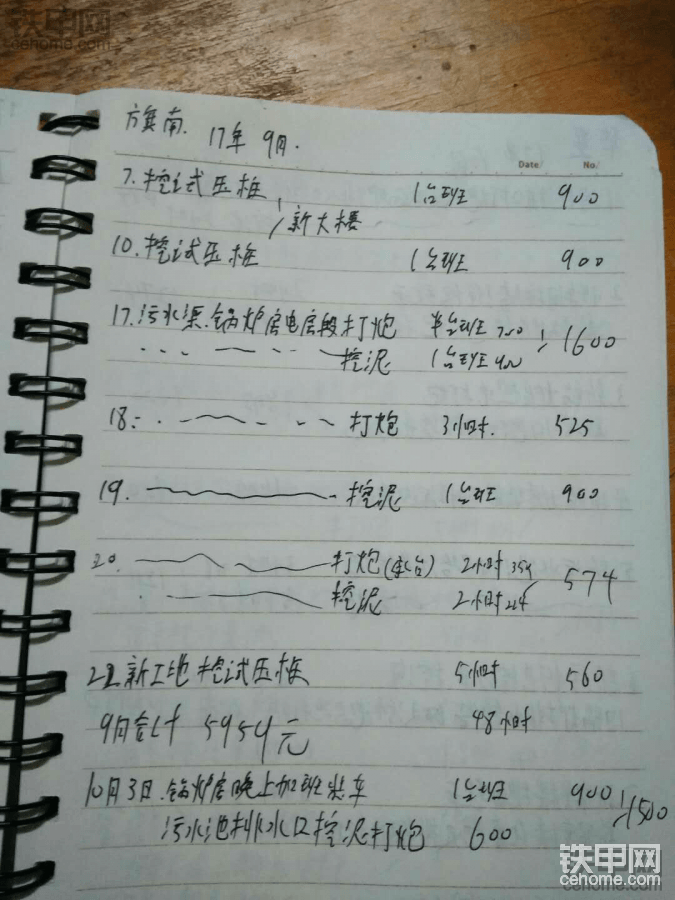 铁甲网
cehome.com
17年 9月.
Date/ No./
7. 挖试压桩 1台班 900
新大楼
10. 挖试压桩 1台班 900
17. 污水渠.锅炉房电房段打炮 半台班 700
1600
挖泥 1台班 900
18. 打炮 3小时. 525
19. 挖泥 1台班 900
20. 打炮(承台) 2小时 354
574
挖泥 2小时
22. 新工地挖试压桩 5小时 560
9月合计 5954元 48小时
10月3日.锅炉房晚上加班装车 1台班 900
1500
污水池排水口挖泥打炮 600
铁甲网
cehome.com